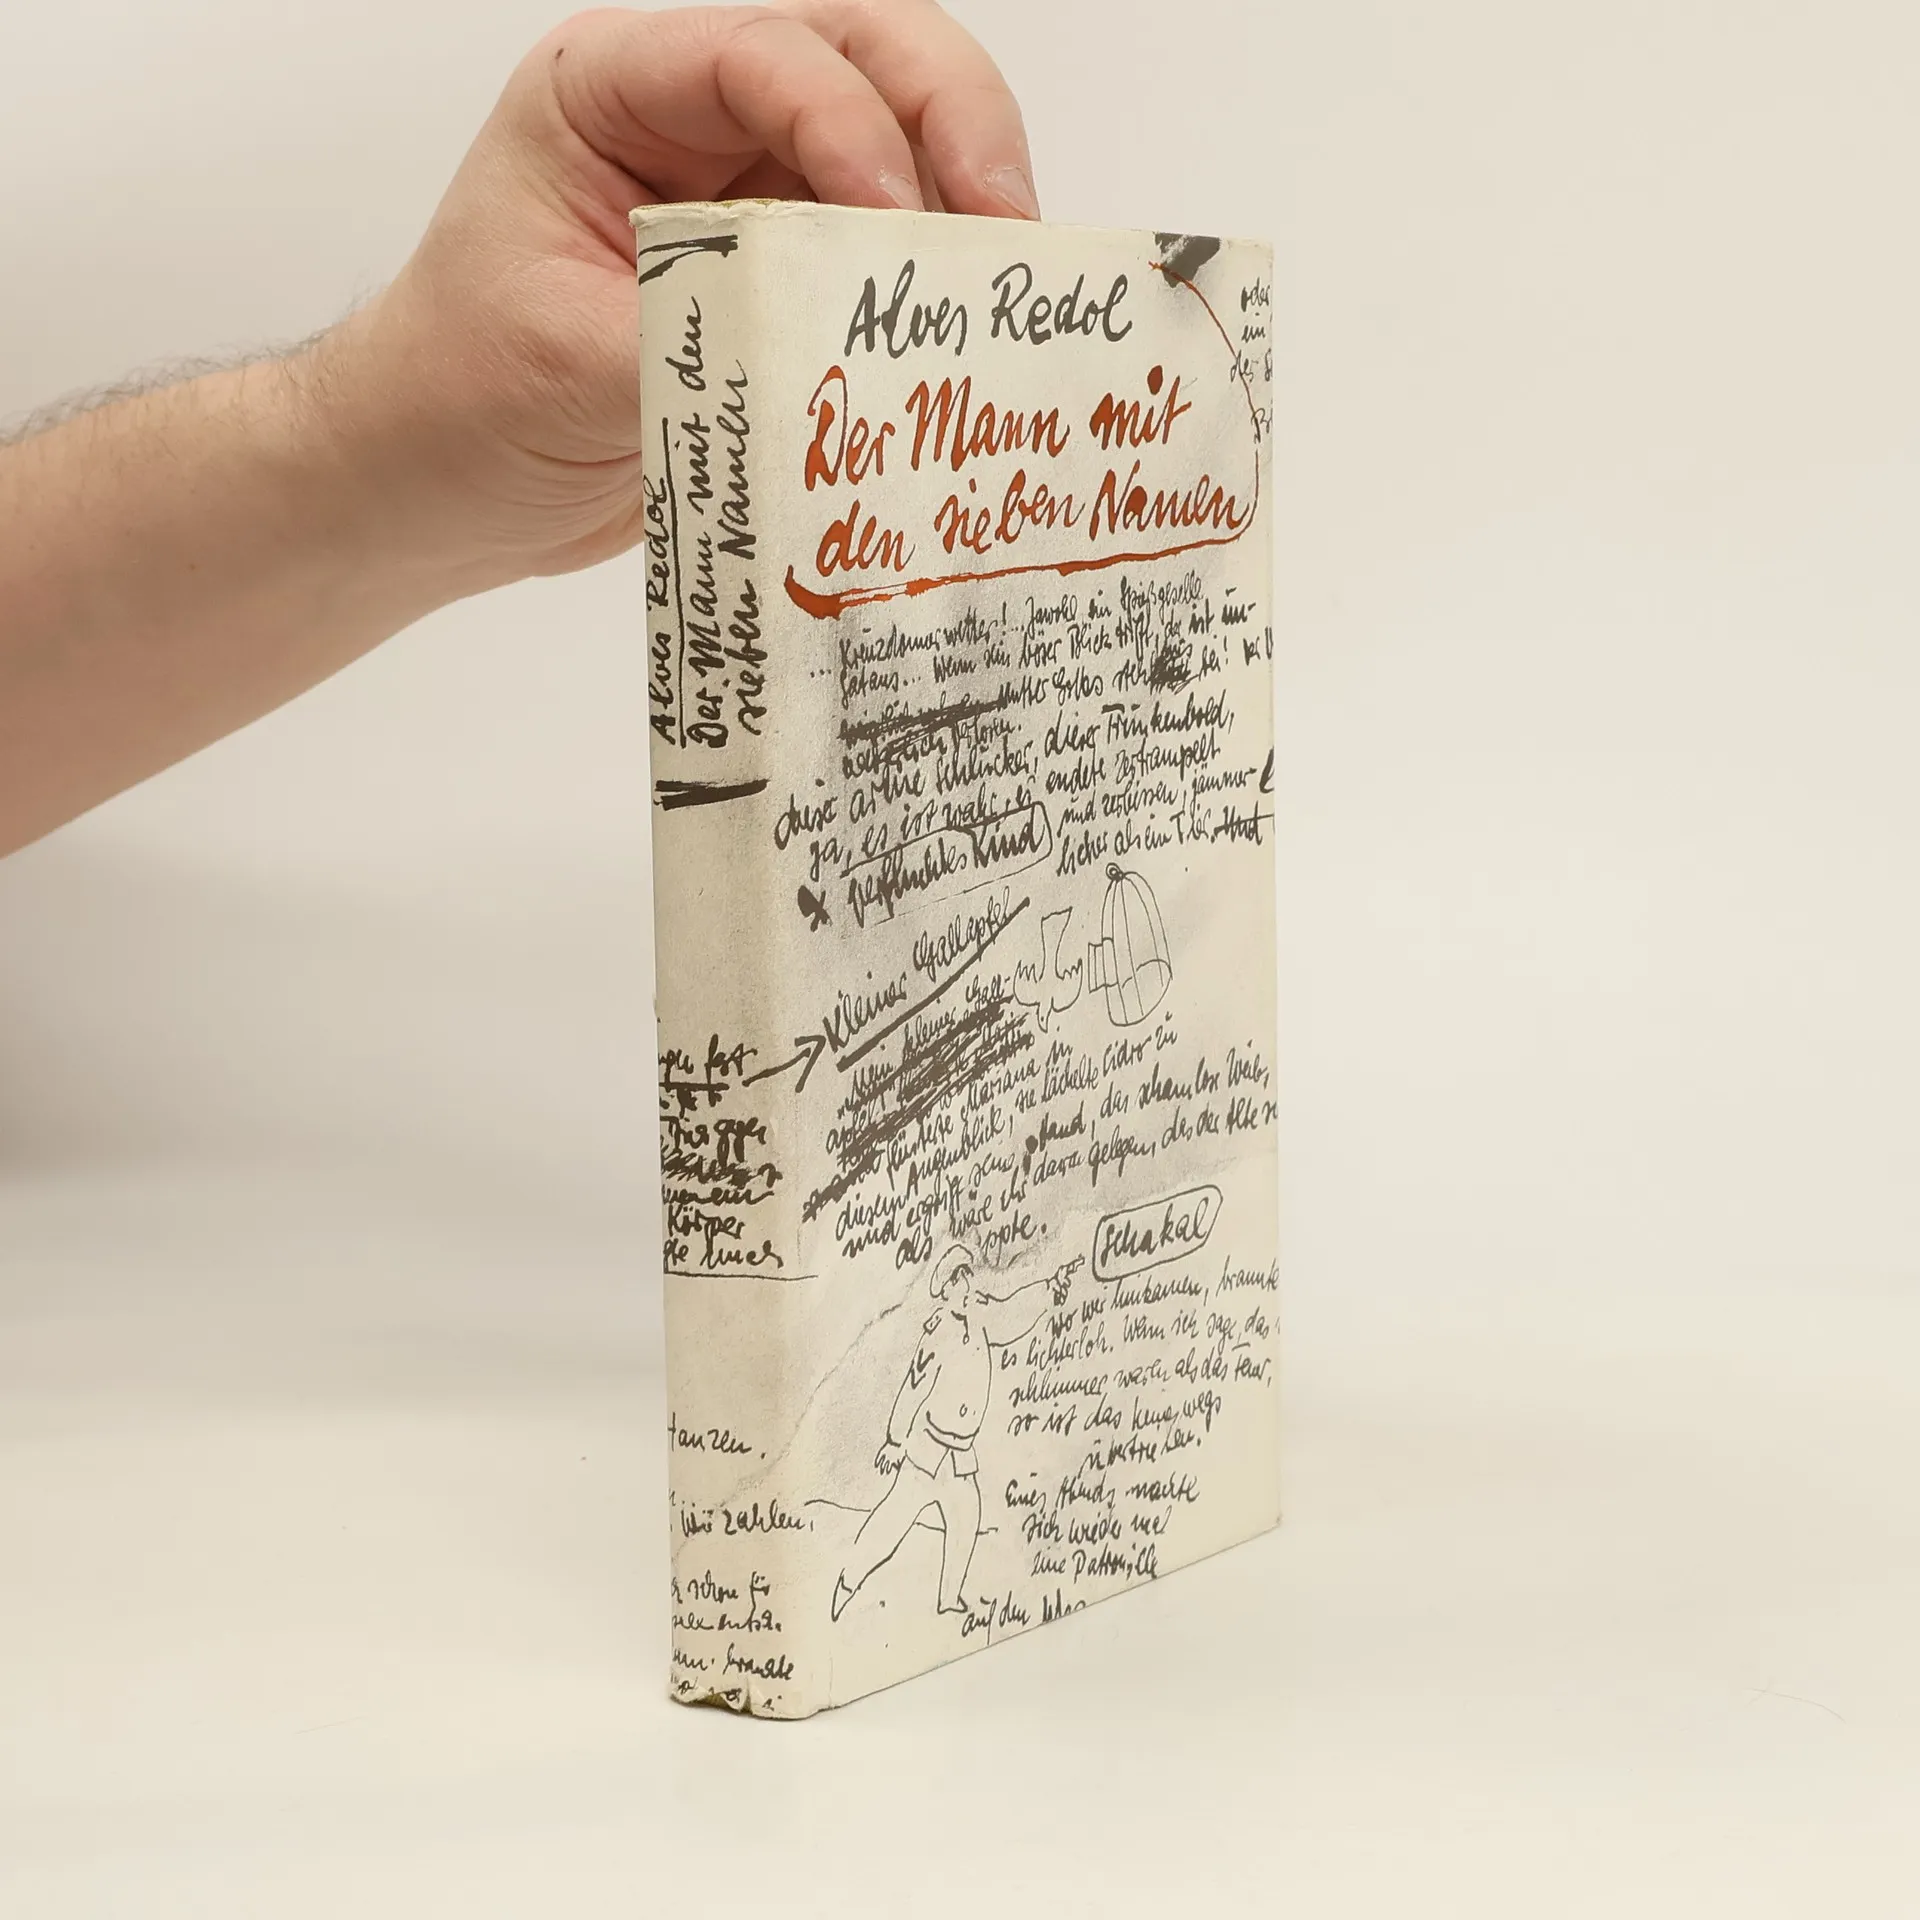 Alves Redol
Der Mann mit den
sieben Namen
Alves Redol
Der Mann mit
den sieben Namen
oder
ein
des
... Kreuzdonnerwetter!... Jawohl ein Spießgeselle
Satans... Wenn sein böser Blick trifft, der ist un-
Mutter Gottes steh uns bei!
verloren.
dieser arme Schlucker, dieser Trunkenbold,
ja, es ist wahr, er endete zertrampelt
verfluchtes Kind
und zerbissen, jämmer-
licher als ein Tier. Und
Kleiner Gallapfel
"Mein kleiner Gall-
apfel"
flüsterte Mariana in
diesem Augenblick, sie lächelte Cidro zu
und ergriff seine Hand, das schamlose Weib,
als wäre ihr daran gelegen, das der Alte
Schakal
wo wir hinkamen, brannte
es lichterloh. Wenn ich sage, das
schlimmer waren als das Feuer,
so ist das keineswegs
übertrieben.
Eines Abends machte
sich wieder mal
eine Patrouille
auf den
fast
ein
Körper
mich
tanzen.
zahlen,
schon für
brannte